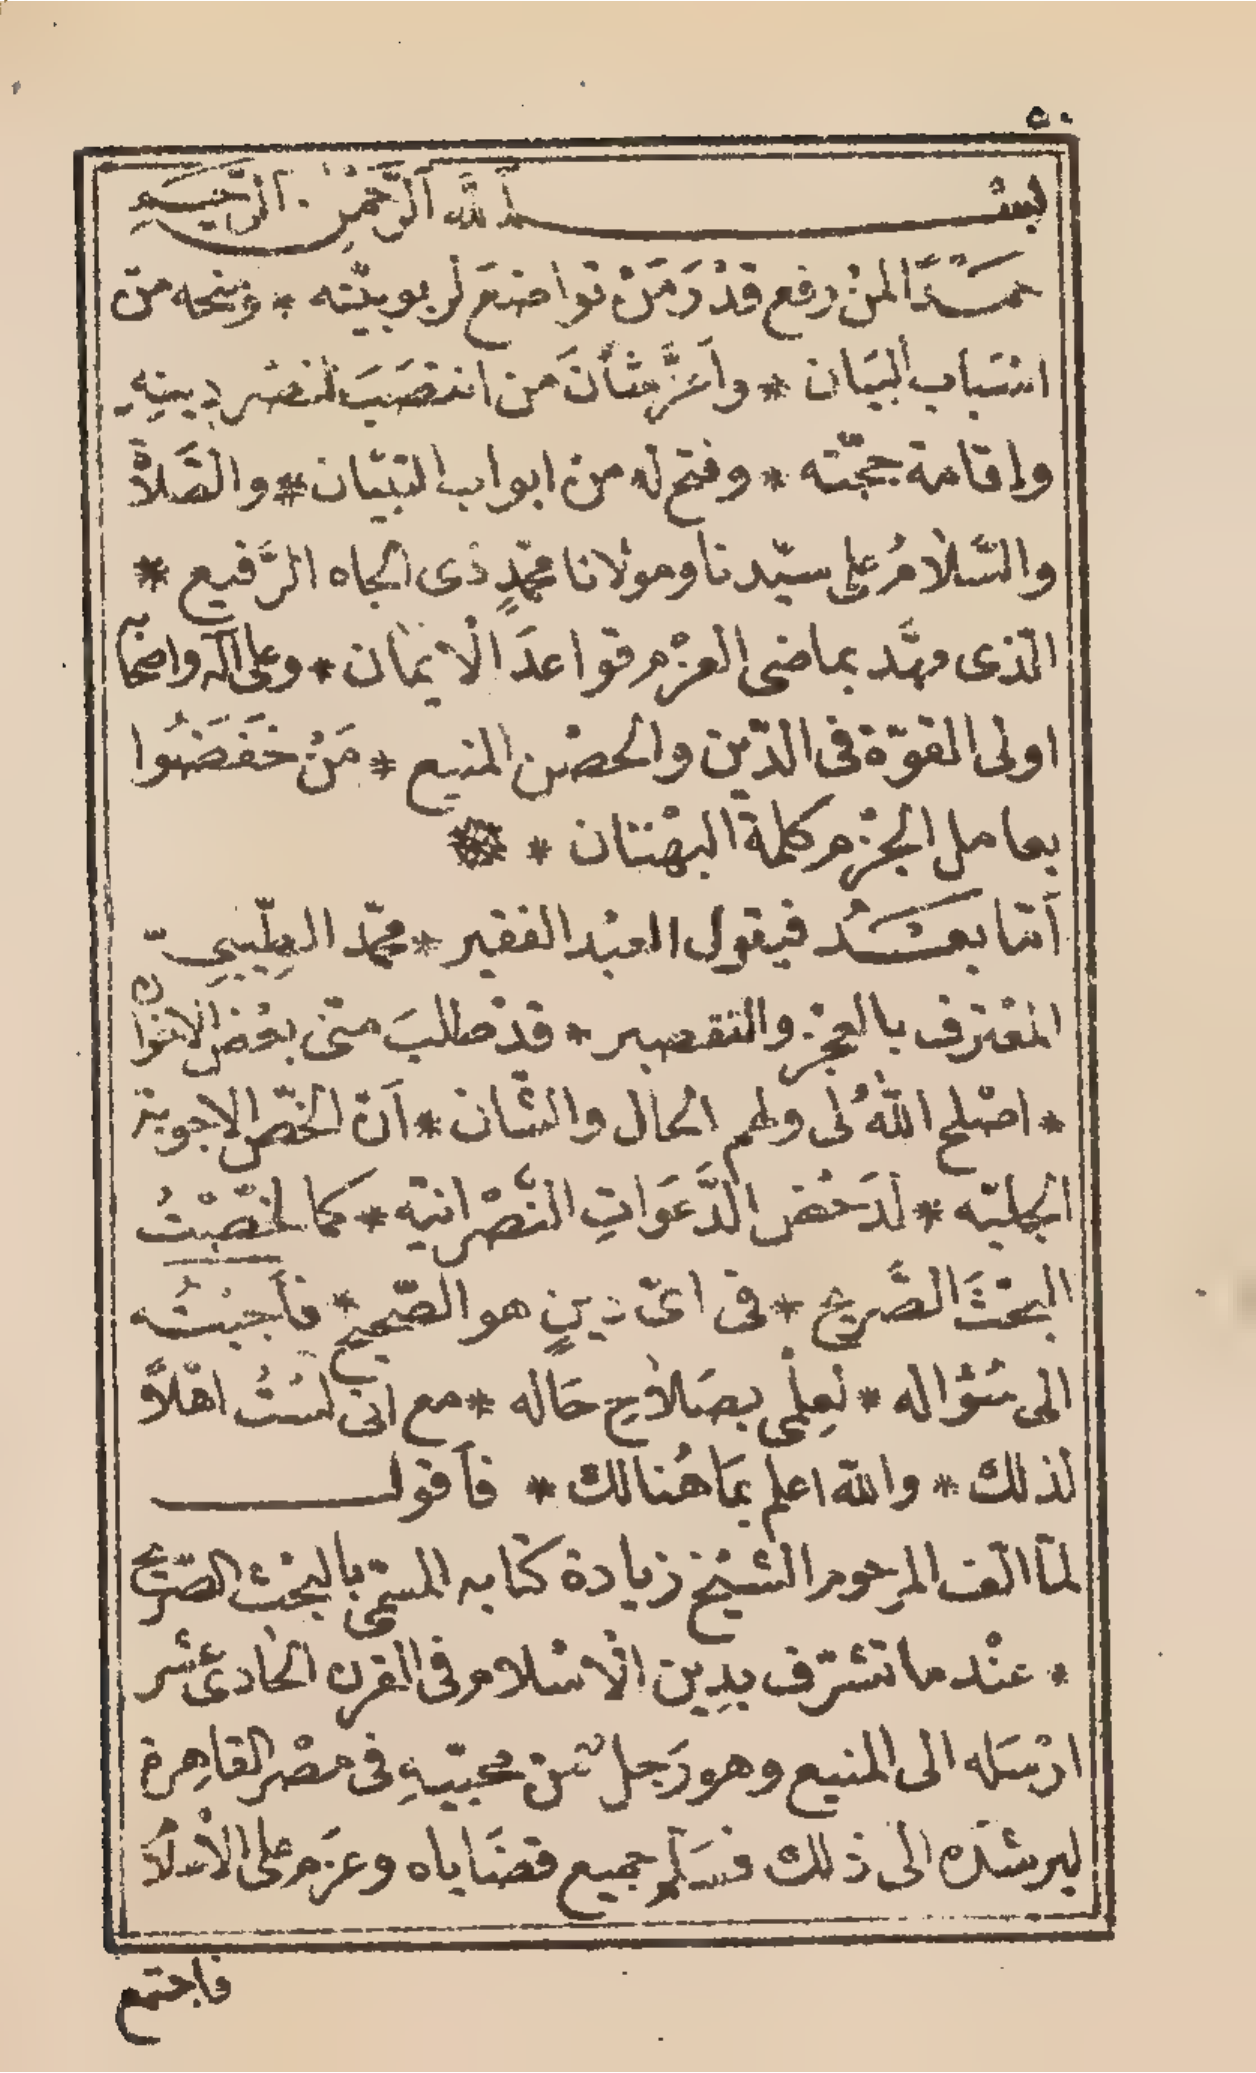 ٥٠
بسم الله الرَّحمٰن الرَّحيم
حمدًا لمنْ رفع قدْرَ مَنْ تواضعَ لربوبيّته * ومنحه من
اسْباب البَيان * وأعَزَّ شأنَ مَن انتصَبَ لنصْر دينِهِ
وإقامة حجّته * وفتح له من ابواب التبيّان * والصَّلاةُ
والسَّلامُ على سيّدنا ومولانا محمّدٍ ذى الجاه الرَّفيع *
الّذى مهَّد بماضى العزْم قواعدَ الْايمٰان * وعلى آله واصحٰا
اولى القوّة فى الدّين والحصْن المنيع * مَنْ خفَضَوا
بعامل الجزْم كلمة البهْتان *
أمّا بعدُ فيقول العبْد الفقير * محمّد الطِّيبىّ
المعْترف بالعجْز والتقصير * قدْ طلبَ منّى بعْض الاخوان
* اصْلح اللهُ لى ولهم الحال والشّان * أنْ الخّص الاجوبة
الجليّه * لدَحْض الدَّعَواتِ النّصْرانيّه * كما لخّصْتُ
البحْثَ الصَّريح * فى اىّ دينٍ هو الصّحيح * فأجبْتُه
الى سُؤاله * لعِلْمى بصَلاحِ حَاله * مع انى لسْتُ اهْلاً
لذلك * والله اعلم بمَا هُنالك * فأقول
لمّا الّف المرحوم الشيْخ زيادة كتابه المسمّى بالبحْث الصّريح
* عنْد ما تشرّف بدِين الْاسْلام فى القرن الحٰادى عْشر
ارْسَله الى المنيع وهو رَجل منْ محبّيهِ فى مصْر القاهِرة
ليرشدَه الى ذلك فسَلّم جميع قضَاياه وعزَم على
فاجتمع